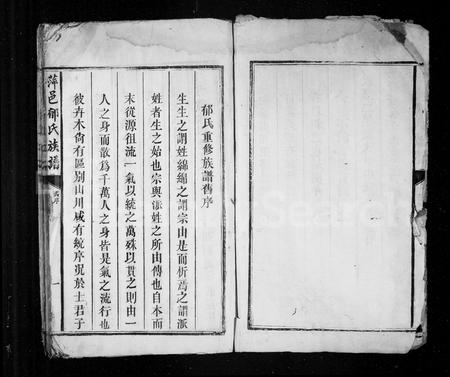 郁氏重修族譜舊序
生生之謂姓綿綿之謂宗由是而忻焉之謂派
姓者生之始也宗與派姓之所由傳也自本而
末從源徂流一氣以統之萬殊以貫之則由一
人之身而散為千萬人之身皆是氣之流行也
彼卉木尚有區别山川咸有統序況於士君子
萍邑郁氏族譜
舊序
一